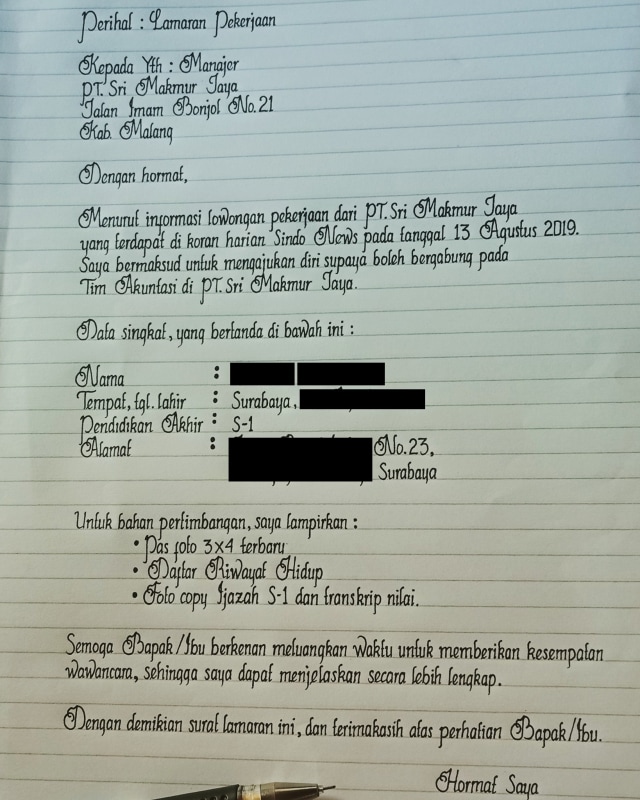 Perihal : Lamaran Pekerjaan
Kepada Yth : Manajer
PT. Sri Makmur Jaya
Jalan Imam Bonjol No. 21
Kab. Malang
Dengan hormat,
Menurut informasi lowongan pekerjaan dari PT. Sri Makmur Jaya
yang terdapat di koran harian Sindo News pada tanggal 13 Agustus 2019.
Saya bermaksud untuk mengajukan diri supaya boleh bergabung pada
Tim Akuntasi di PT. Sri Makmur Jaya.
Data singkat, yang bertanda di bawah ini :
Nama :
Tempat, tgl. lahir : Surabaya,
Pendidikan Akhir : S-1
Alamat : No. 23,
Surabaya
Untuk bahan pertimbangan, saya lampirkan :
• Pas foto 3x4 terbaru
• Daftar Riwayat Hidup
• Foto copy Ijazah S-1 dan transkrip nilai.
Semoga Bapak/Ibu berkenan meluangkan waktu untuk memberikan kesempatan
wawancara, sehingga saya dapat menjelaskan secara lebih lengkap.
Dengan demikian surat lamaran ini, dan terimakasih atas perhatian Bapak/Ibu.
Hormat Saya